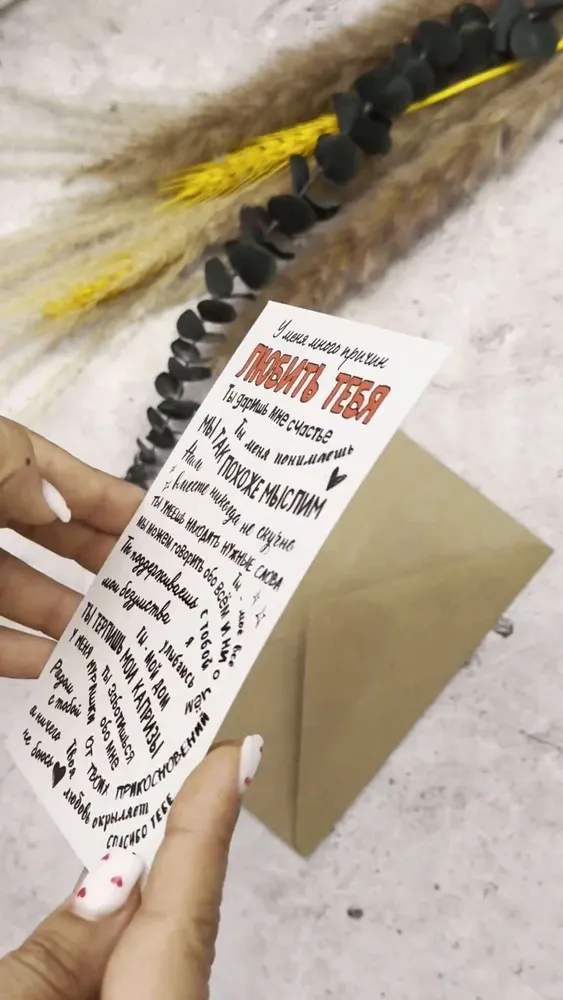 У меня много причин
ЛЮБИТЬ ТЕБЯ
Ты даришь мне счастье
Ты меня понимаешь
МЫ ТАК ПОХОЖЕ МЫСЛИМ
Нам вместе никогда не скучно
ТЫ УМЕЕШЬ НАХОДИТЬ НУЖНЫЕ СЛОВА
МЫ МОЖЕМ ГОВОРИТЬ ОБО ВСЁМ И НИ О ЧЁМ
Ты - моё всё
Ты поддерживаешь
мои безумства
С ТОБОЙ Я УЛЫБАЮСЬ
ТЫ - МОЙ ДОМ
ТЫ ТЕРПИШЬ МОИ КАПРИЗЫ
ТЫ ЗАБОТИШЬСЯ
ОБО МНЕ
У МЕНЯ МУРАШКИ ОТ ТВОИХ ПРИКОСНОВЕНИЙ
Рядом
с тобой
я ничего
не боюсь
Твоя
любовь окрыляет
СПАСИБО ТЕБЕ